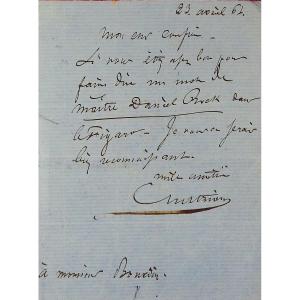 23 avril 62.
Mon cher cousin.
Si vous étiez assez bon pour
faire dire un mot de
Maître Daniel Rock dans
le Figaro. Je vous en serais
bien reconnaissant.
mille amitiés
Chatrian
à monsieur Bourdin.